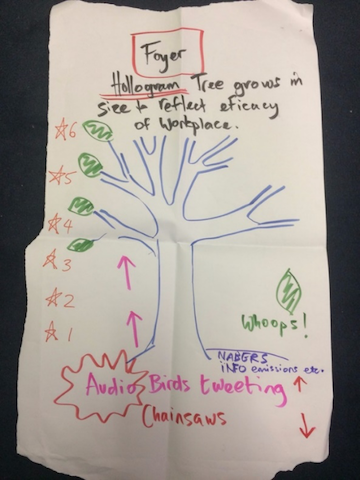 Foyer
Hollogram Tree grows in
size to reflect eficacy
of workplace.
☆6
☆5
☆4
☆3
☆2
☆1
Whoops!
NABERS
INFO emissions etc.
Audio Birds tweeting ↑
Chainsaws ↓